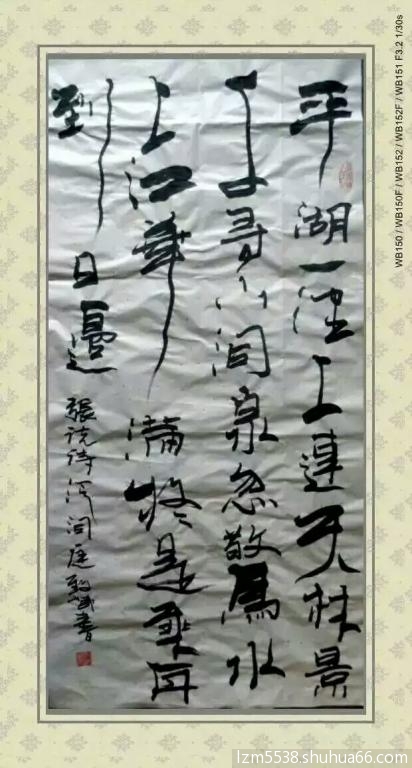 平湖一望上連天林景
千尋下洞泉忽驚水
上江華滿疑是乘舟
到日邊
張說詩泛洞庭書
WB150 / WB150F / WB152 / WB152F / WB151 F3.2 1/30s
lzm5538.shuhua66.com